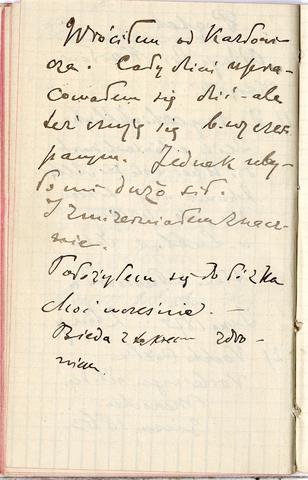 Wróciłem od Karłowi-
cza. Cały dzień wypra-
cowałem się dziś - ale
też czuję się b. wyczer-
panym. Jednak uby-
ło mi dużo sił.
Zmizerniałem znacz-
nie.
Położyłem się do łóżka
choć wcześnie. —
Bieda z tym zdro-
wiem.